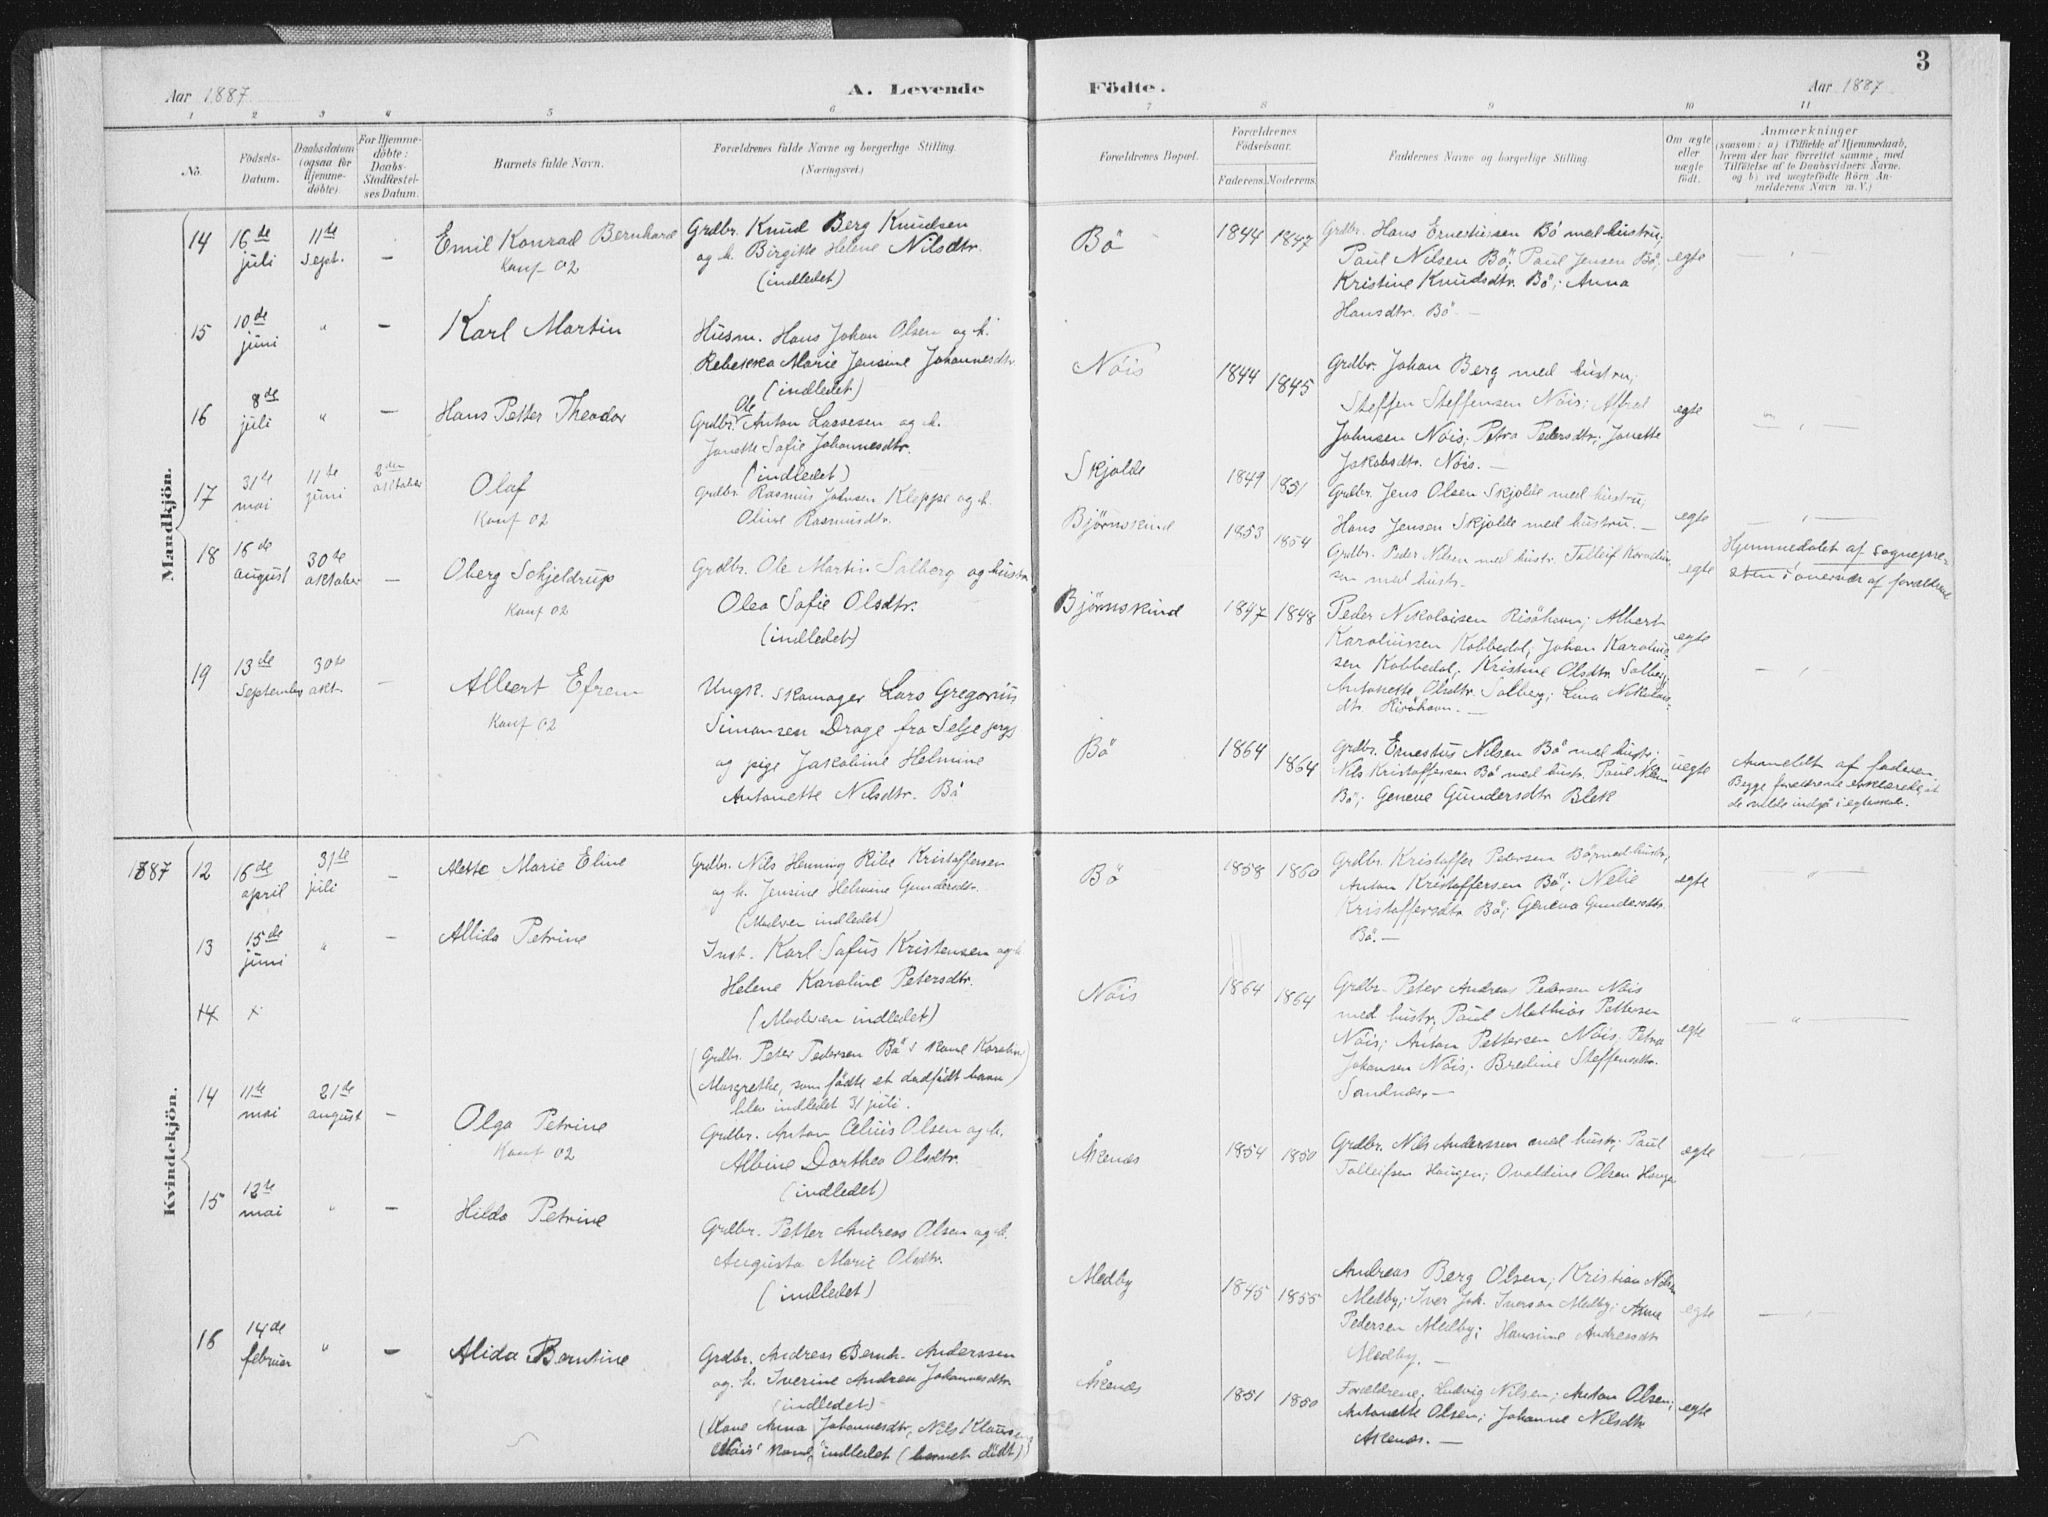 3
Aar 1887.
A. Levende
Födte.
Aar 1887
1 2 3 4 5 6 7 8 9 10 11
No.
Födsels-
Datum.
Daabsdatum
(ogsaa för
Hjemme-
döbte)
For Hjemme-
döbte:
Daabs-
Stadfæstel-
ses Datum.
Barnets fulde Navn.
Forældrenes fulde Navne og borgerlige Stilling.
(Næringsvei.)
Forældrenes Bopæl.
Forældrenes
Födselsaar.
Faderens.
Moderens.
Faddernes Navne og borgerlige Stilling.
Om ægte
eller
uægte
födt.
Anmærkninger
(saasom: a) i Tilfælde af Hjemmedaab,
hvem der har forrettet samme, med
Tilföielse af to Daabsvidners Navne.
og b) ved uægtefödte Börn An-
melderens Navn m. V.)
Mandkjön.
14
16de
juli
11te
Sept.
—
Emil Konrad Bernhard
Konf 02
Grdbr. Knud Berg Knudsen
og h. Birgitte Helene Nilsdtr.
(indledet)
Bö
1844
1847
Grdbr. Hans Ernestussen Bö med hustru;
Paul Nilsen Bö; Paul Jensen Bö;
Kristine Knudsdtr. Bö; Anna
Hansdtr. Bö —
egte
15
10de
juni
"
—
Karl Martin
Husm. Hans Johan Olsen og h.
Rebekka Marie Jensine Johannesdtr
(indledet)
Nöis
1844
1845
Grdbr. Johan Berg med hustru;
Steffen Steffensen Nöis; Alfred
Johnsen Nöis; Petra Pedersdtr; Janette
Jakobsdtr. Nöis. —
egte
16
8de
juli
"
—
Hans Petter Theodor
Grdbr. Ole Anton Lassesen og h.
Janette Sofie Johannesdtr.
(indledet)
Skjolde
1849
1851
Grdbr. Jens Olsen Skjolde med hustru;
Hans Jensen Skjolde med hustru. —
egte
17
31te
mai
11te
juni
2den
oktober
Olaf
Konf 02
Grdbr. Rasmus Johnsen Kleppe og h.
Oline Rasmusdtr.
Björnskind
1853
1854
Grdbr. Peder Nilsen med hustr. Tolleif Kornelius
sen med hustr.
egte
Hjemmedöbt af sognepre-
sten i nærvær af forældrene
18
16de
august
30te
oktober
—
Oberg Schjeldrup
Konf 02
Grdbr. Ole Martin Solberg og hustru
Olea Sofie Olsdtr.
(indledet)
Björnskind
1847
1848
Peder Nikolaisen Risöhavn; Albert
Karoliussen Kobbedal; Johan Karolius-
sen Kobbedal; Kristine Olsdtr Solberg;
Antonette Olsdtr. Solberg; Lina Nikolais-
dtr. Risöhavn. —
egte
19
13de
September
30te
okt.
—
Albert Efrem
Konf 02
Ungk. skomager Lars Gregorius
Simonsen Drage fra Selje prgj.
og pige Jakobine Helmine
Antonette Nilsdtr. Bö
Bö
1864
1864
Grdbr. Ernestus Nilsen Bö med hustr;
Nils Kristoffersen Bö med hustr. Paul Nilsen
Bö; Geneve Gundersdtr Blek
uegte
Anmeldt af faderen.
Begge forældrene erklærede, at
de vilde indgå i egteskab.
Kvindekjön.
1887
12
16de
april
31te
juli
—
Alette Marie Eline
Grdbr. Nils Henning Ribe Kristoffersen
og h. Jensine Helmine Gundersdtr.
(Moderen indledet)
Bö
1858
1860
Grdbr. Kristoffer Petersen Bö med hustr;
Anton Kristoffersen Bö; Nelie
Kristoffersdtr Bö; Geneva Gundersdtr.
Bö. —
egte
13
15de
juni
"
—
Allida Petrine
Inst. Karl Safus Kristensen og h.
Helene Karoline Petersdtr.
(Moderen indledet)
Nöis
1864
1864
Grdbr. Peter Andreas Pedersen Nöis
med hustr; Paul Mathias Pettersen
Nöis; Anton Pettersen Nöis; Petra
Johansen Nöis; Bredine Steffensdtr.
Sandnæs. —
egte
14
+
(Grdbr. Peter Pedersen Bö's kone Karoline
Margrethe, som födte et dödfödt barn)
blev indledet 31 juli.
14
11te
mai
21de
august
—
Olga Petrine
Konf 02
Grdbr. Anton Celius Olsen og h.
Albine Dorthea Olsdtr.
(indledet)
Åkenæs
1854
1850
Grdbr. Nils Anderssen med hustr; Paul
Tolleifsen Haugen; Ovaldine Olsen Haugen
egte
15
12te
mai
"
—
Hilda Petrine
Grdbr. Petter Andreas Olsen og h.
Augusta Marie Olsdtr.
(indledet)
Medby
1845
1855
Andreas Berg Olsen; Kristian Nilsen
Medby; Iver Joh. Iversen Medby; Anne
Pedersen Medby; Hansine Andreasdtr
Medby. —
egte
16
14de
februar
"
—
Alida Berntine
Grdbr. Andreas Bernh. Anderssen
og h. Iverine Andrea Johannesdtr.
(indledet)
(Kone Anna Johannesdtr, Nils Klausens
Nöis' kone, indledet (barnet dödt))
Åkenæs
1851
1850
Forældrene; Ludvig Nilsen; Anton Olsen;
Antonette Olsen; Johanne Nilsdtr
Åkenæs. —
egte